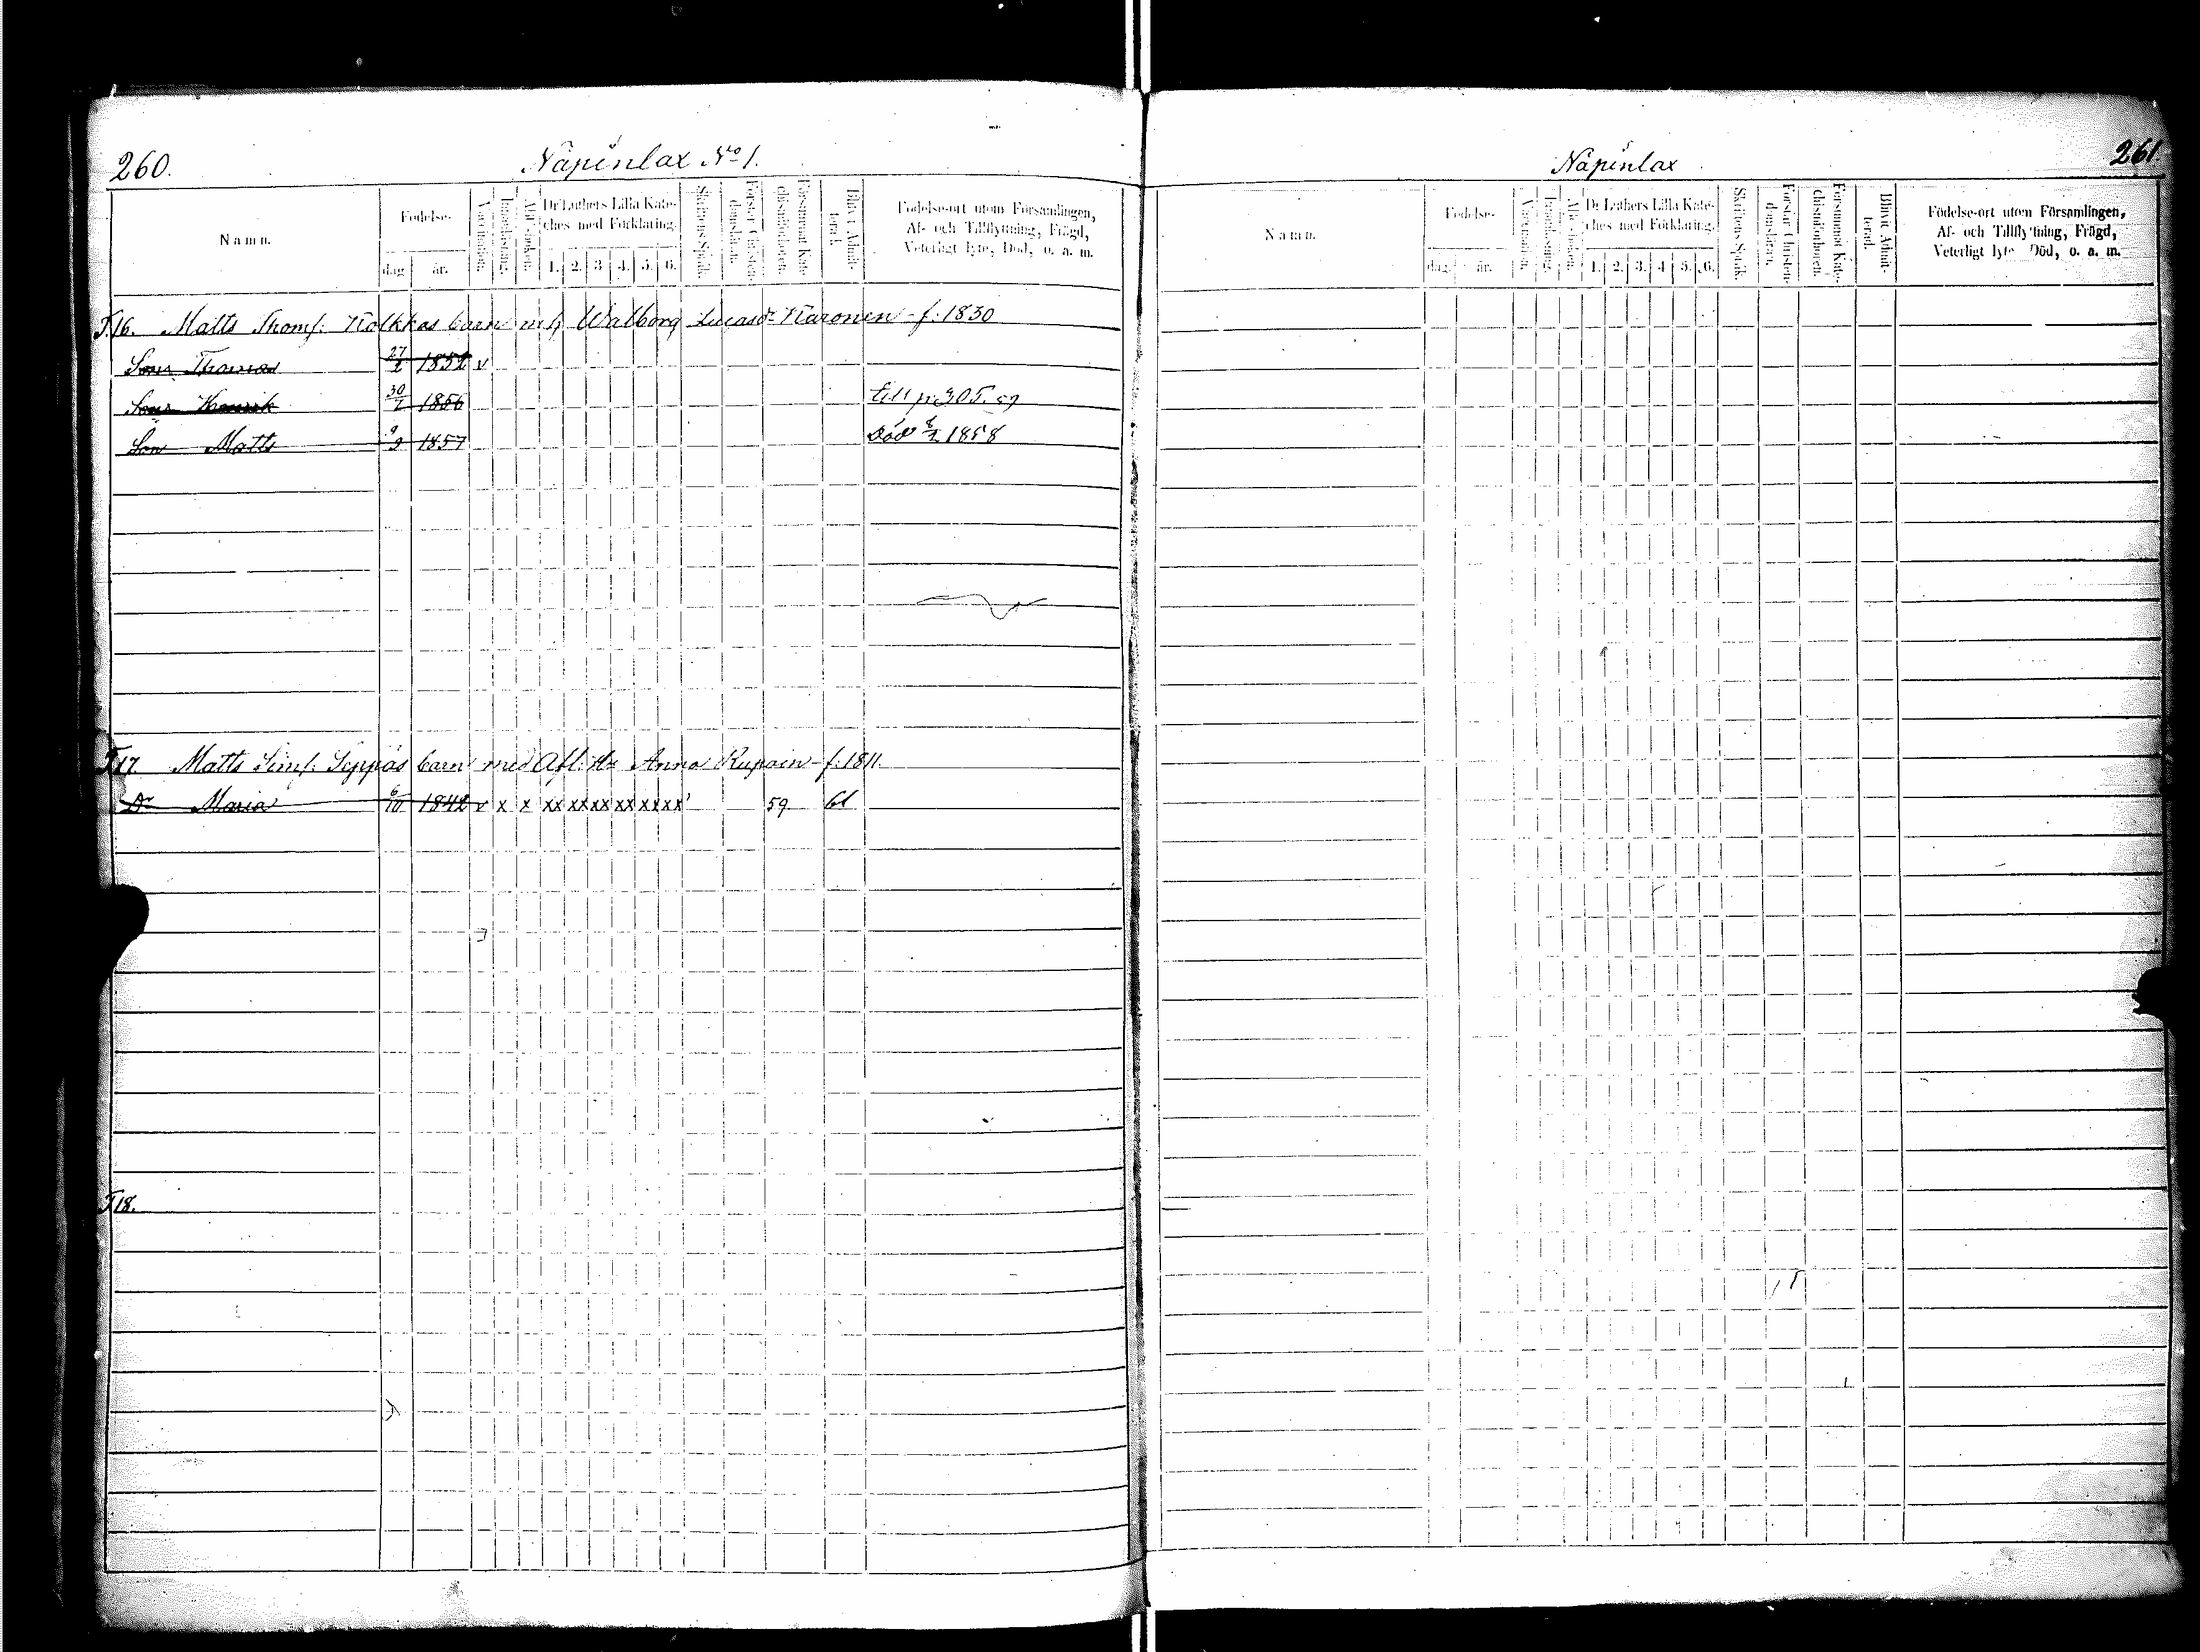 260.
Näpinlax No 1.
Namn.
Födelse-
dag.
år.
Dr Luthers Lilla Kate-
ches med Förklaring.
1. 2. 3. 4. 5. 6.
Skriftens Språk.
Förstår Christen-
domsläran.
Försummat Kate-
chismiförhören.
Blivit Admit-
terad.
Födelse-ort utom Församlingen,
Af- och Tillflyttning, Frägd,
Veterligt lyte, Död, o. a. m.
T.16. Matts Thoms: Kolkkas barn m h Walborg Lucasdr Karonen f. 1830
Son Thomas 27/2 1852 v
Son Henrik 30/7 1856 till p. 305. 59
Son Matts 9/9 1857 död 8/2 1858
T.17 Matts Sims: Seppäs barn med Afl: Hu Anna Rupoin f. 1811
Dr Maria 6/10 1842 v x x xx xx xx xx xx xx 59. 61
T.18.
Näpinlax
261.
Namn.
Födelse-
dag.
år.
Dr Luthers Lilla Kate-
ches med Förklaring.
1. 2. 3. 4 5. 6.
Skriftens Språk.
Förstår Christen-
domsläran.
Försummat Kate-
chismiförhören.
Blivit Admit-
terad.
Födelse-ort utom Församlingen,
Af- och Tillflyttning, Frägd,
Veterligt lyte Död, o. a. m.